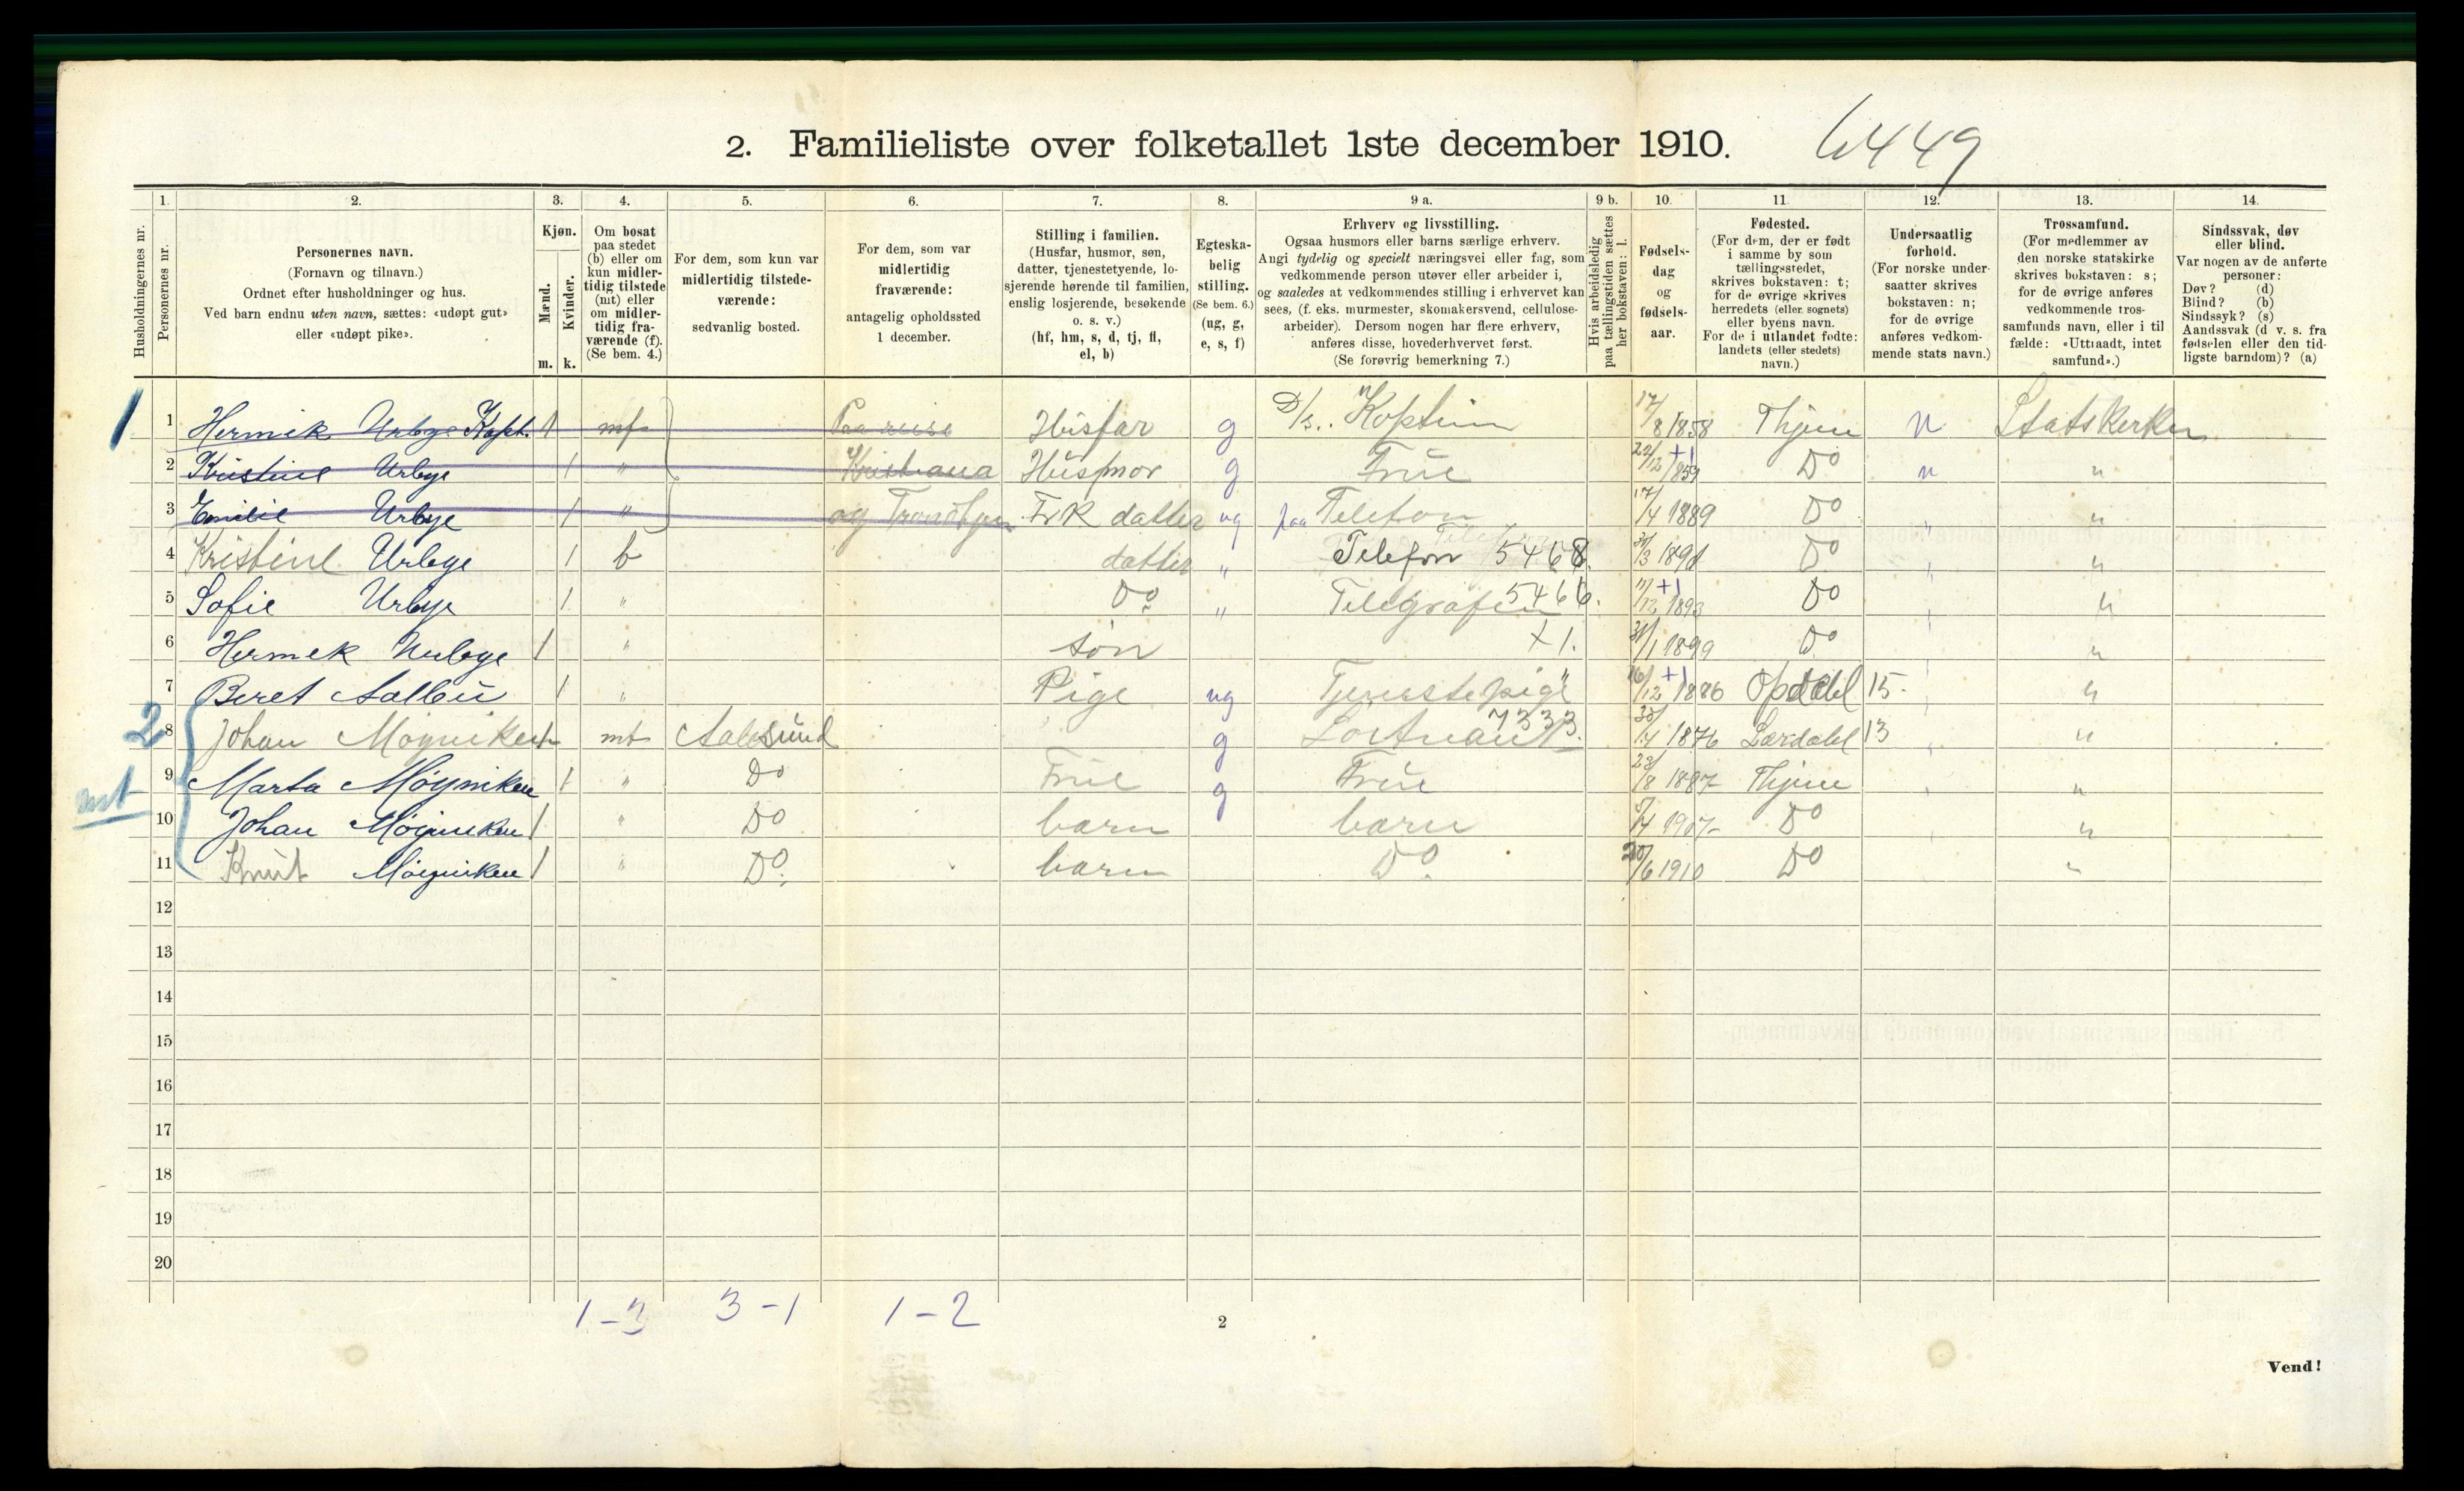 2. Familieliste over folketallet 1ste december 1910. 6449
Husholdningernes nr.
1. Personernes nr.
2. Personernes navn.
(Fornavn og tilnavn.)
Ordnet efter husholdninger og hus.
Ved barn endnu uten navn, sættes: «udøpt gut»
eller «udøpt pike».
3. Kjøn.
Mænd. Kvinder.
m. k.
4. Om bosat
paa stedet
(b) eller om
kun midler-
tidig tilstede
(mt) eller
om midler-
tidig fra-
værende (f).
(Se bem. 4.)
5. For dem, som kun var
midlertidig tilstede-
værende:
sedvanlig bosted.
6. For dem, som var
midlertidig
fraværende:
antagelig opholdssted
1 december.
7. Stilling i familien.
(Husfar, husmor, søn,
datter, tjenestetyende, lo-
sjerende hørende til familien,
enslig losjerende, besøkende
o. s. v.)
(hf, hm, s, d, tj, fl,
el, b)
8. Egteska-
belig
stilling.
(Se bem. 6.)
(ug, g,
e, s, f)
9 a. Erhverv og livsstilling.
Ogsaa husmors eller barns særlige erhverv.
Angi tydelig og specielt næringsvei eller fag, som
vedkommende person utøver eller arbeider i,
og saaledes at vedkommendes stilling i erhvervet kan
sees, (f. eks. murmester, skomakersvend, cellulose-
arbeider). Dersom nogen har flere erhverv,
anføres disse, hovederhvervet først.
(Se forøvrig bemerkning 7.)
9 b. Hvis arbeidsledig
paa tællingstiden sættes
her bokstaven: l.
10. Fødsels-
dag
og
fødsels-
aar.
11. Fødested.
(For dem, der er født
i samme by som
tællingsstedet,
skrives bokstaven: t;
for de øvrige skrives
herredets (eller sognets)
eller byens navn.
For de i utlandet fødte:
landets (eller stedets)
navn.)
12. Undersaatlig
forhold.
(For norske under-
saatter skrives
bokstaven: n;
for de øvrige
anføres vedkom-
mende stats navn.)
13. Trossamfund.
(For medlemmer av
den norske statskirke
skrives bokstaven: s;
for de øvrige anføres
vedkommende tros-
samfunds navn, eller i til
fælde: «Uttraadt, intet
samfund».)
14. Sindssvak, døv
eller blind.
Var nogen av de anførte
personer:
Døv? (d)
Blind? (b)
Sindssyk? (s)
Aandssvak (d v. s. fra
fødselen eller den tid-
ligste barndom)? (a)
1 1 Hermek Urbye Kapt. 1 mf Paa reise Husfar g D/s. 17/8 1858 Thjem n Statskerken
2 Kristine Urbye 1 " Kristiana Husmor g Frue 22/12 +1 1859 Do n "
3 Emilie Urbye 1 " og Trondhjem Frk datter ug paa Telefon 17/4 1889 Do " "
4 Kristine Urbye 1 b datter " Telefon 5468. 1891 Do " "
5 Sofie Urbye 1 " Do " Telegrafen 5466. 11/12 +1 1893 Do " "
6 Hermek Urbye 1 " søn +1. 31/1 1899 Do " "
7 Beret Aalbu 1 " Pige ug Tjenestepige 16/12 +1 1886 Opdahl 15 " "
2 8 Johan Møyniken 1 mt Aalesund g 7333. 30/4 1876 Lærdahl 13 " "
mt 9 Marta Møyniken 1 " Do Frue g Frue 23/8 1887 Thjem " "
10 Johan Møyniken 1 " Do barn barn 1907 Do " "
11 Knut Møyniken 1 " Do. barn Do. 20/6 1910 Do "
12
13
14
15
16
17
18
19
20
1-3 3-1 1-2
2
Vend!